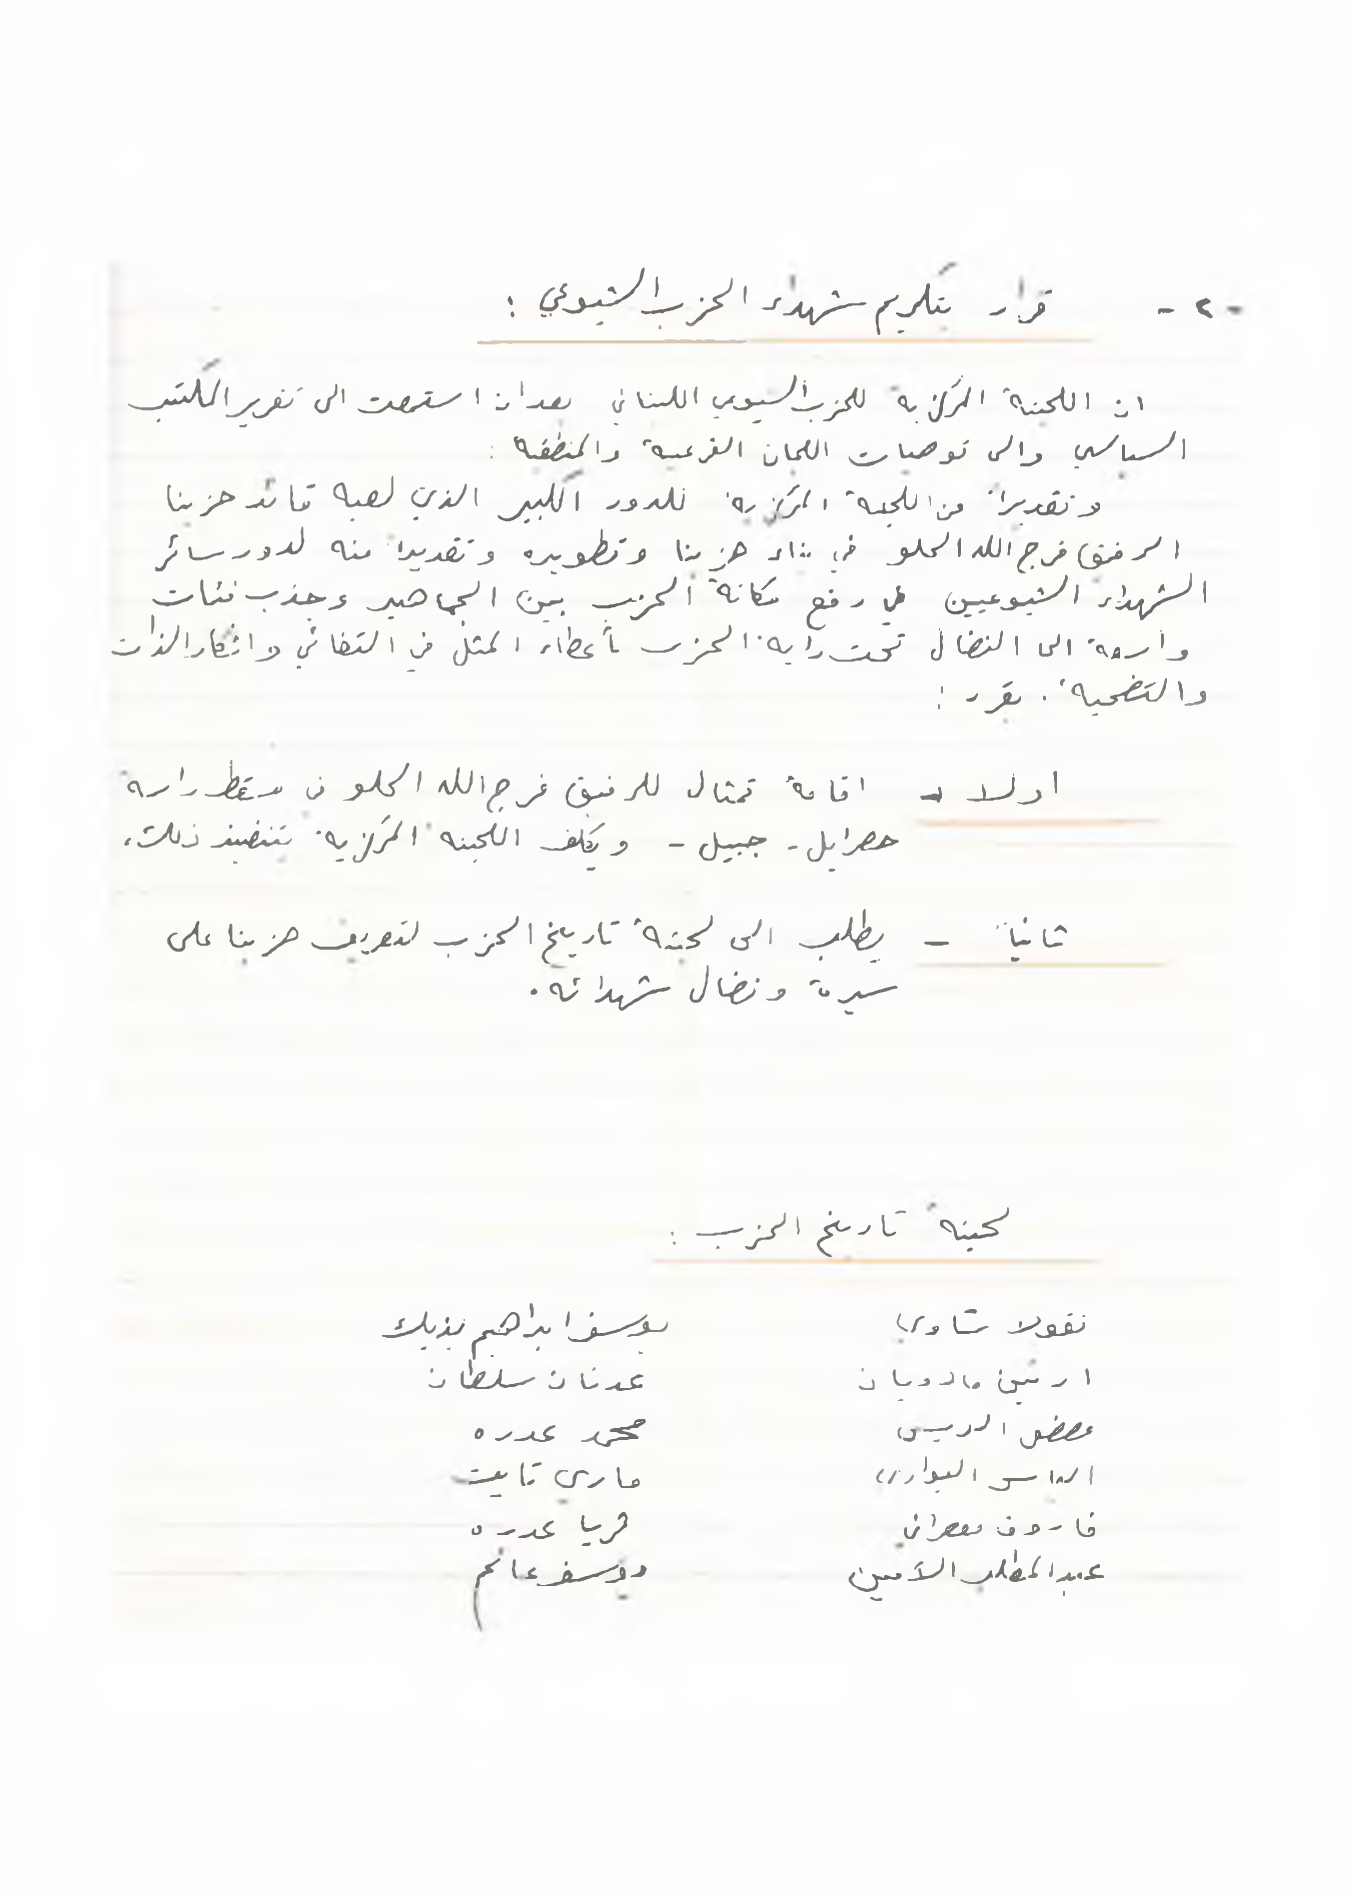 -٢- قرار بتكريم شهداء الحزب الشيوعي :
ان اللجنة المركزية للحزب الشيوعي اللبناني بعد ان استمعت الى تقرير المكتب
السياسي والى توصيات اللجان الفرعية والمنطقية :
وتقديراً من اللجنة المركزية للدور الكبير الذي لعبه قائد حزبنا
الرفيق فرج الله الحلو في بناء حزبنا وتطويره وتقديراً منه لدور سائر
الشهداء الشيوعيين في رفع مكانة الحزب بين الجماهير وجذب فئات
واسعة الى النضال تحت راية الحزب بأعطاء المثل في التفاني وانكار الذات
والتضحية . يقرر :
اولا - اقامة تمثال للرفيق فرج الله الحلو في مسقط راسه
حصرايل - جبيل - ويكلف اللجنة المركزية بتنفيذ ذلك،
ثانياً - يطلب الى لجنة تاريخ الحزب لتعريف حزبنا على
سيرة ونضال شهدائه .
لجنة تاريخ الحزب :
نقولا شاوي يوسف ابراهيم يزبك
ارتين مادويان عدنان سلطان
محمد عدره
الياس البواري ماري تابت
فاروق معصراني ثريا عدره
عبد المطلب الامين يوسف غانم